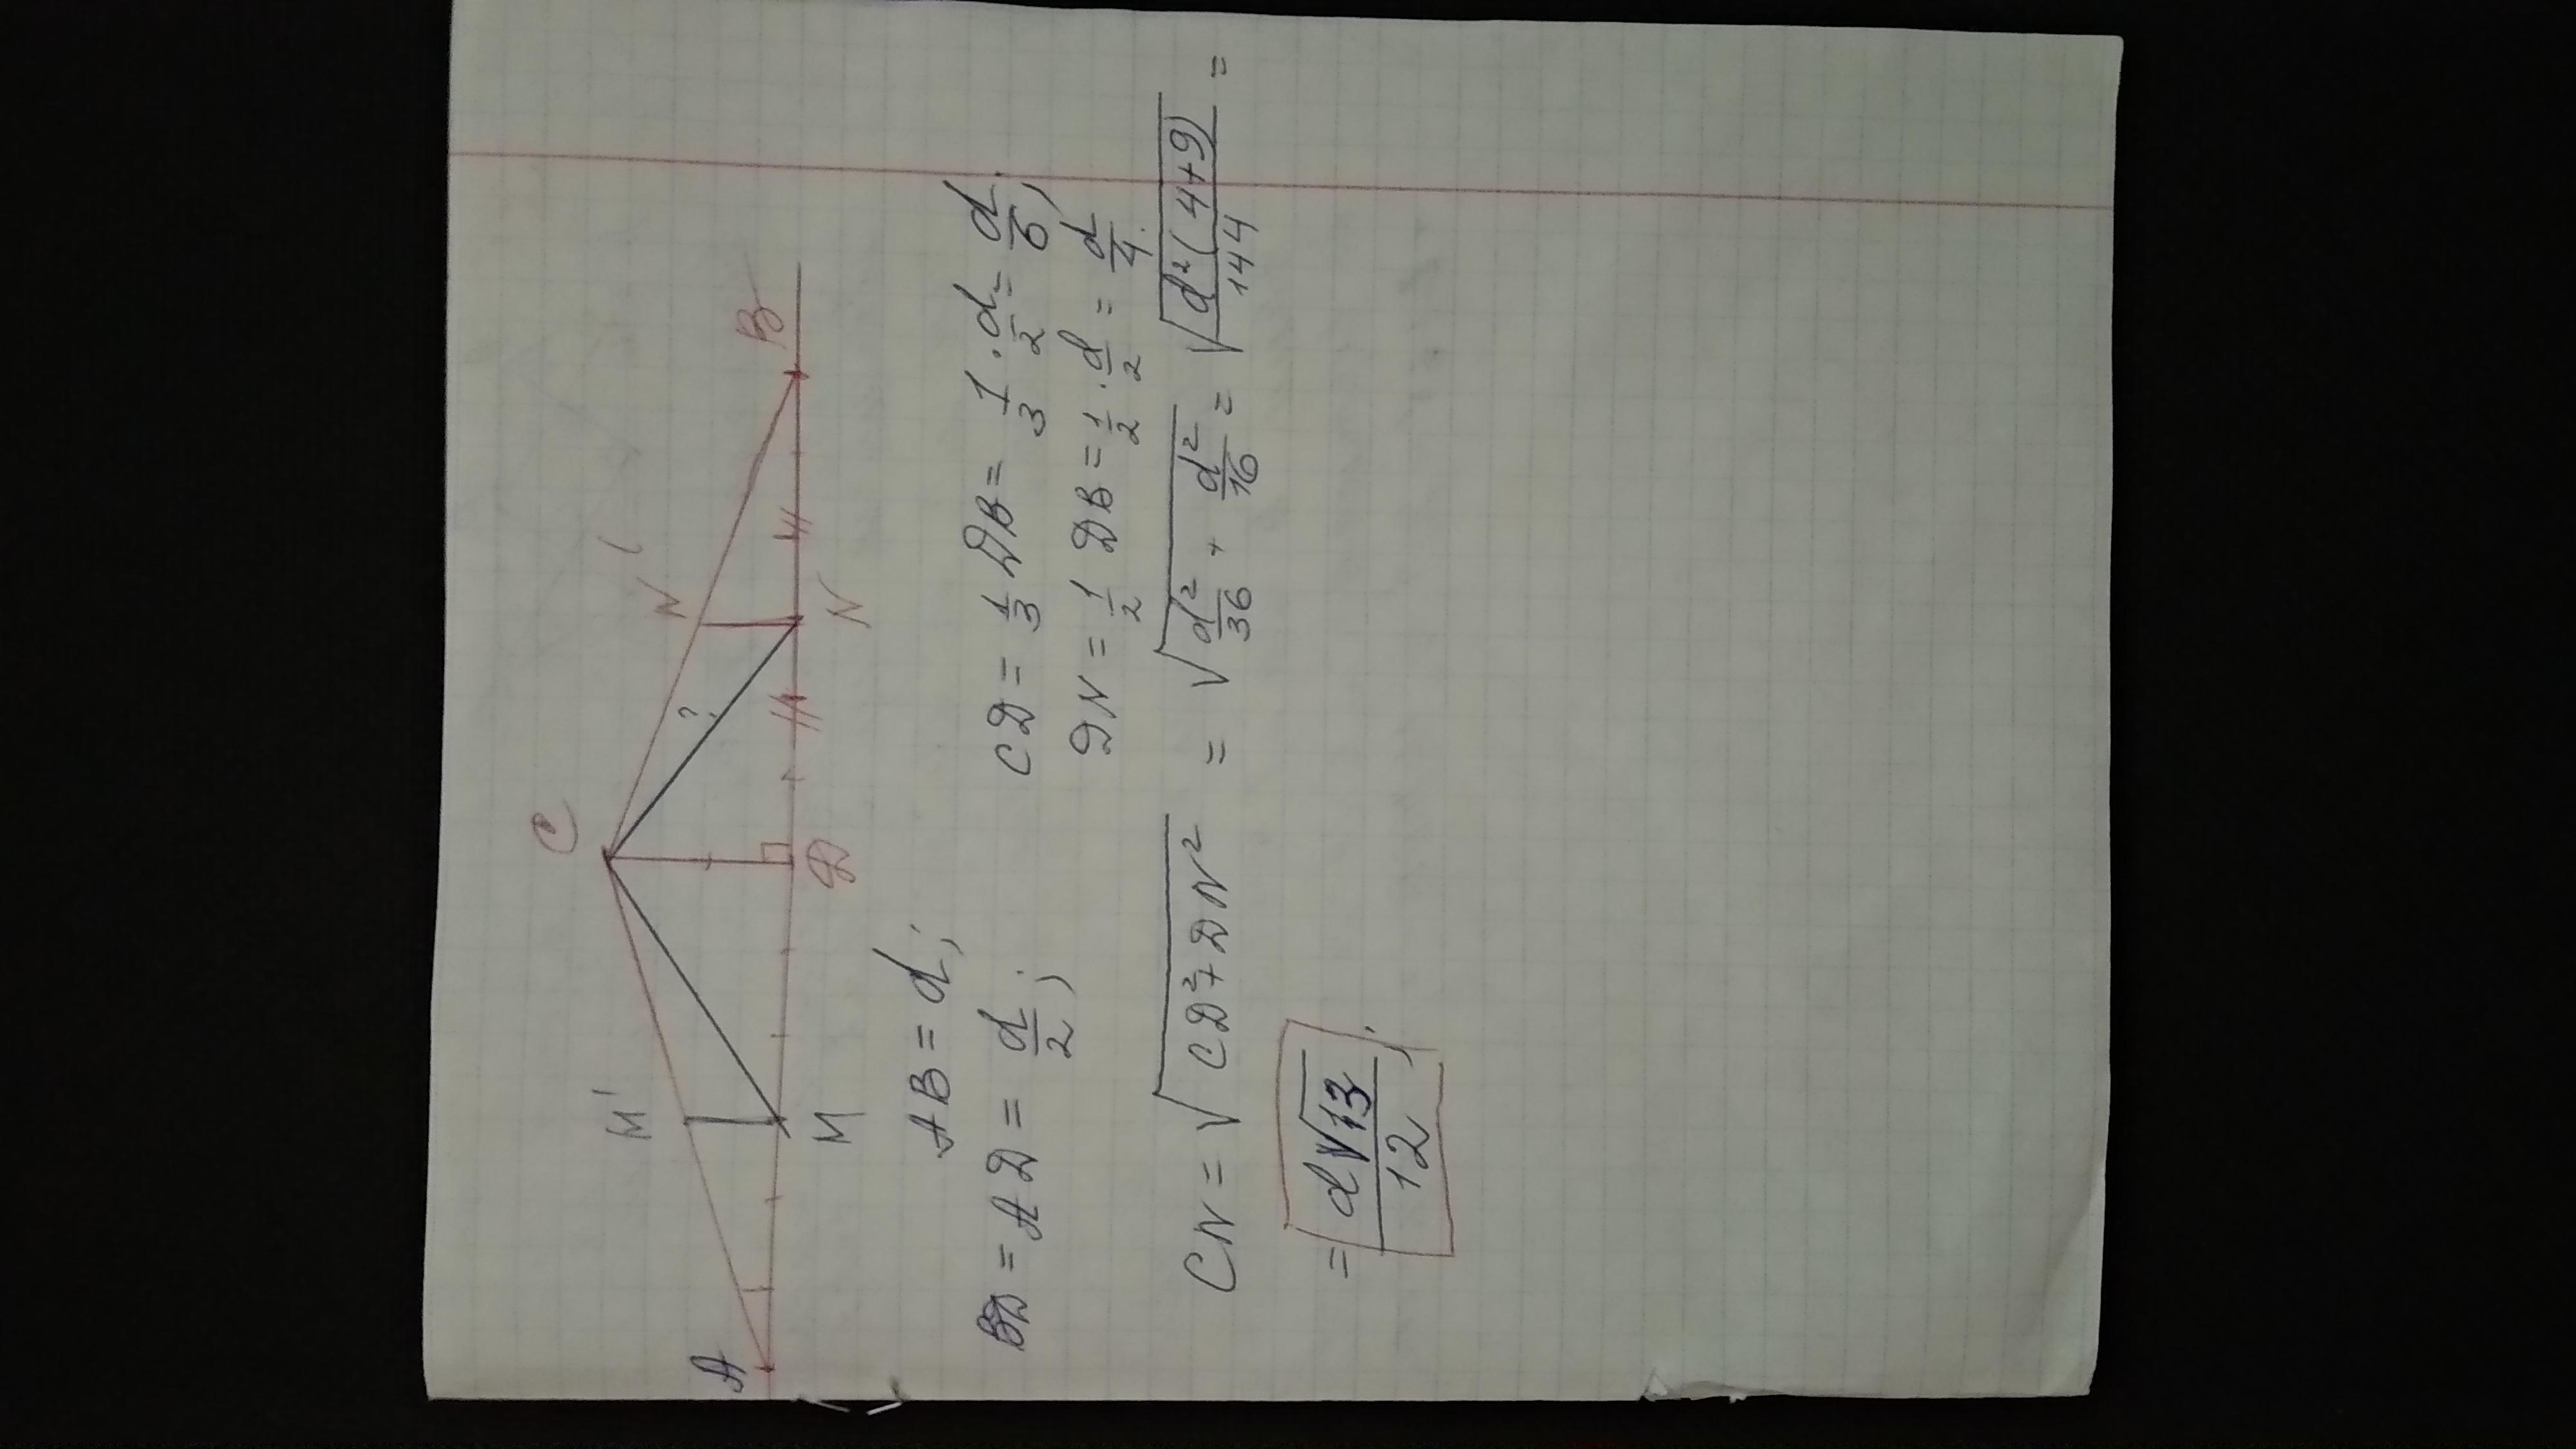 C
M' N'
?
A M D N B
AB = d;
BD = AD = d/2; CD = 1/3 DB = 1/3 · d/2 = d/6;
DN = 1/2 DB = 1/2 · d/2 = d/4.
CN = √(CD² + DN²) = √(d²/36 + d²/16) = √(d²(4+9)/144) =
= d√13/12;